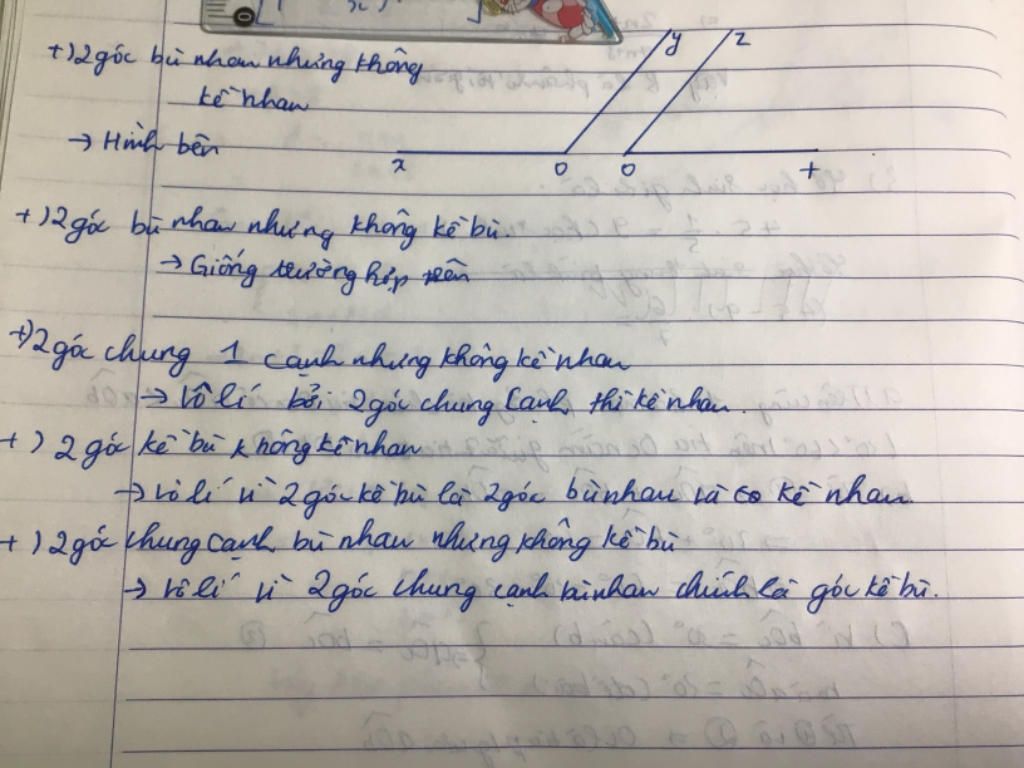 +) 2 góc bù nhau nhưng không
kề nhau
→ Hình bên
y z
x O O t
+) 2 góc bù nhau nhưng không kề bù.
→ Giống trường hợp trên
+) 2 góc chung 1 cạnh nhưng không kề nhau
→ Vô lí bởi 2 góc chung cạnh thì kề nhau.
+) 2 góc kề bù không kề nhau
→ vô lí vì 2 góc kề bù là 2 góc bù nhau và kề nhau.
+) 2 góc chung cạnh bù nhau nhưng không kề bù
→ vô lí vì 2 góc chung cạnh bù nhau chính là góc kề bù.